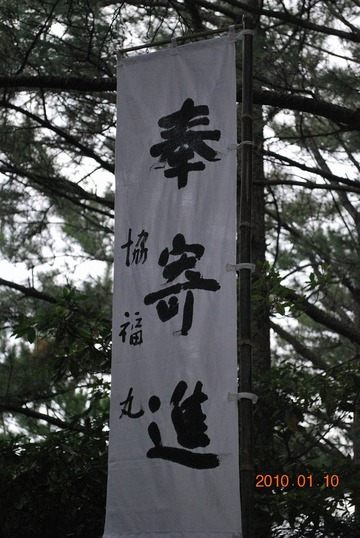 奉寄進
協福丸
2010 01 10